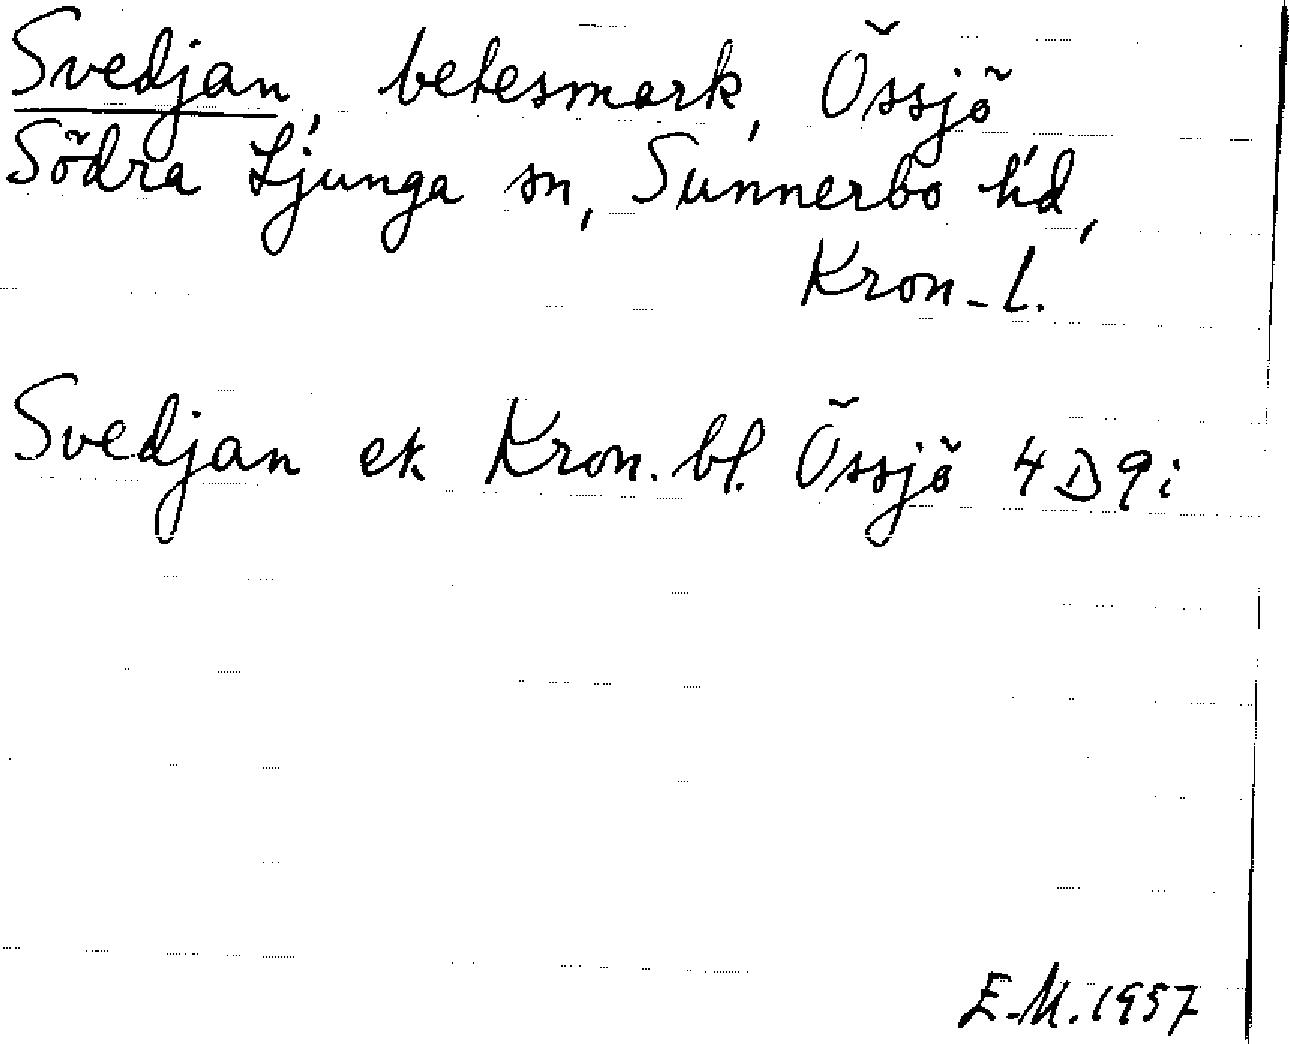 Svedjan, betesmark, Össjö
Södra Ljunga sn, Sunnerbo hd,
Kron-l.
Svedjan ek Kron. bl. Össjö 4D9i
E.M. 1957